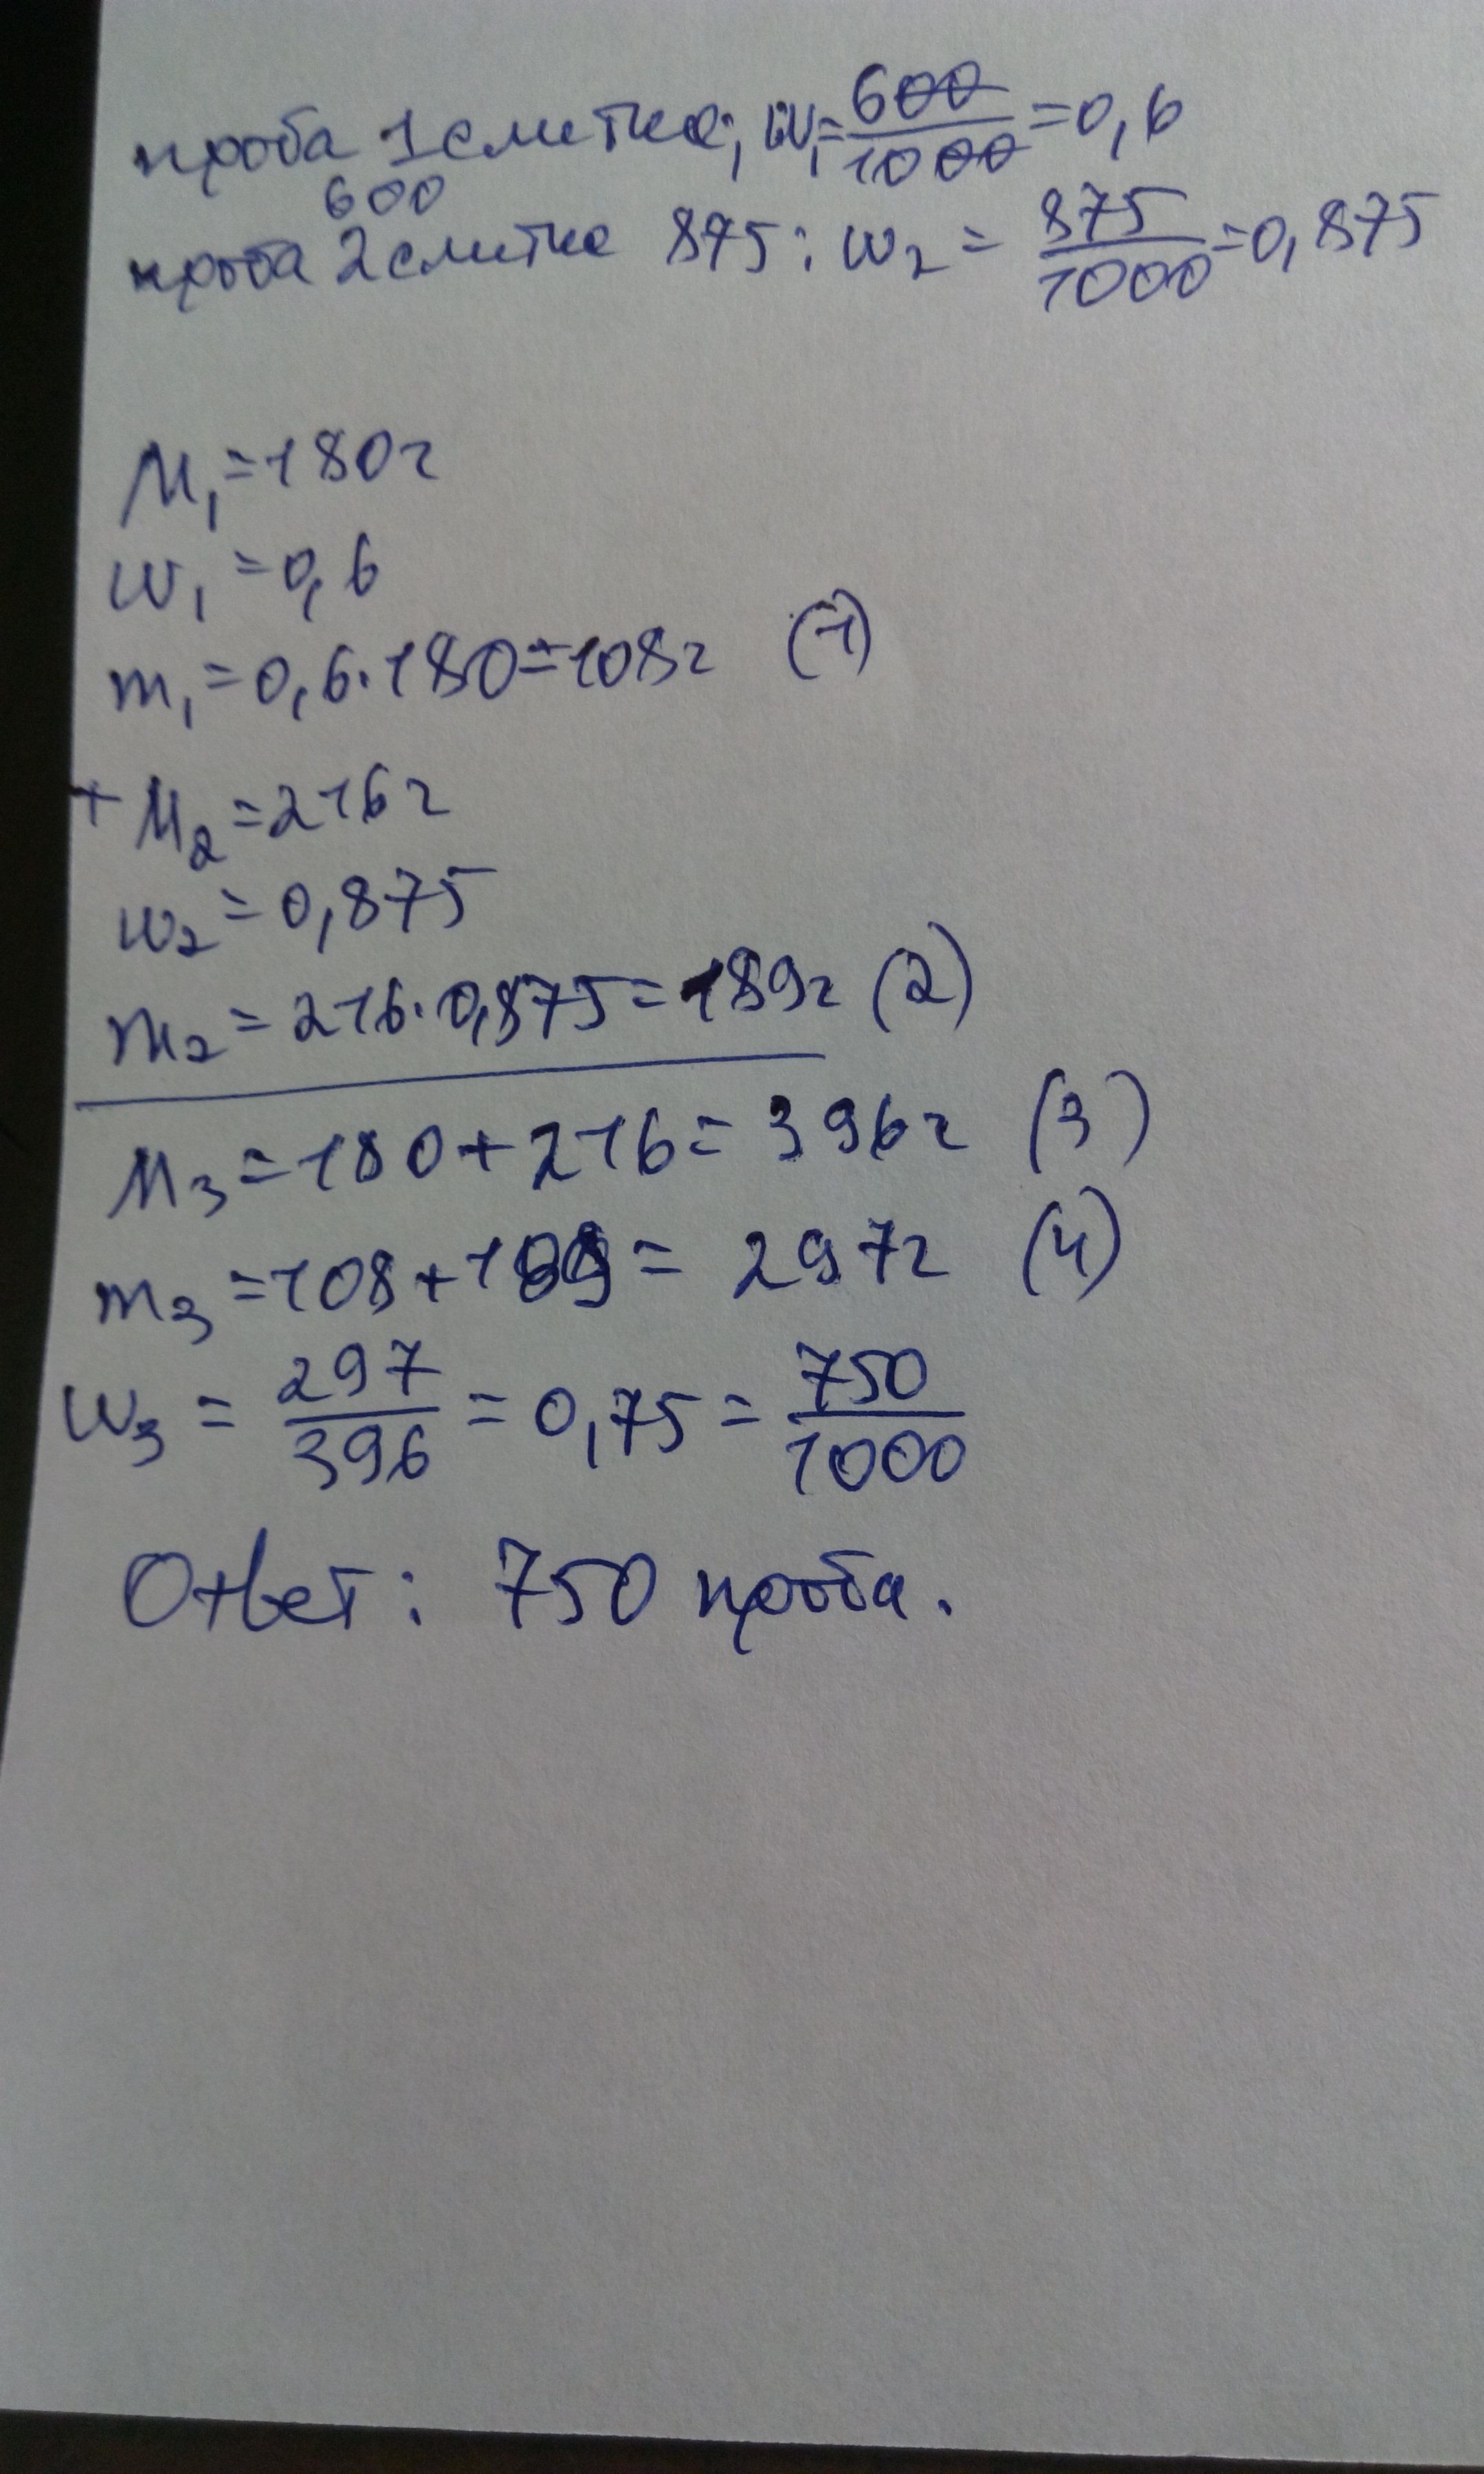 проба 1 слитка; W₁=600/1000=0,6
600
проба 2 слитка 875: W₂ = 875/1000=0,875
M₁=180г
W₁=0,6
m₁=0,6·180=108г (1)
+ M₂=216г
W₂=0,875
m₂=216·0,875=189г (2)
M₃=180+216=396г (3)
m₃=108+189=297г (4)
W₃ = 297/396 = 0,75 = 750/1000
Ответ: 750 проба.